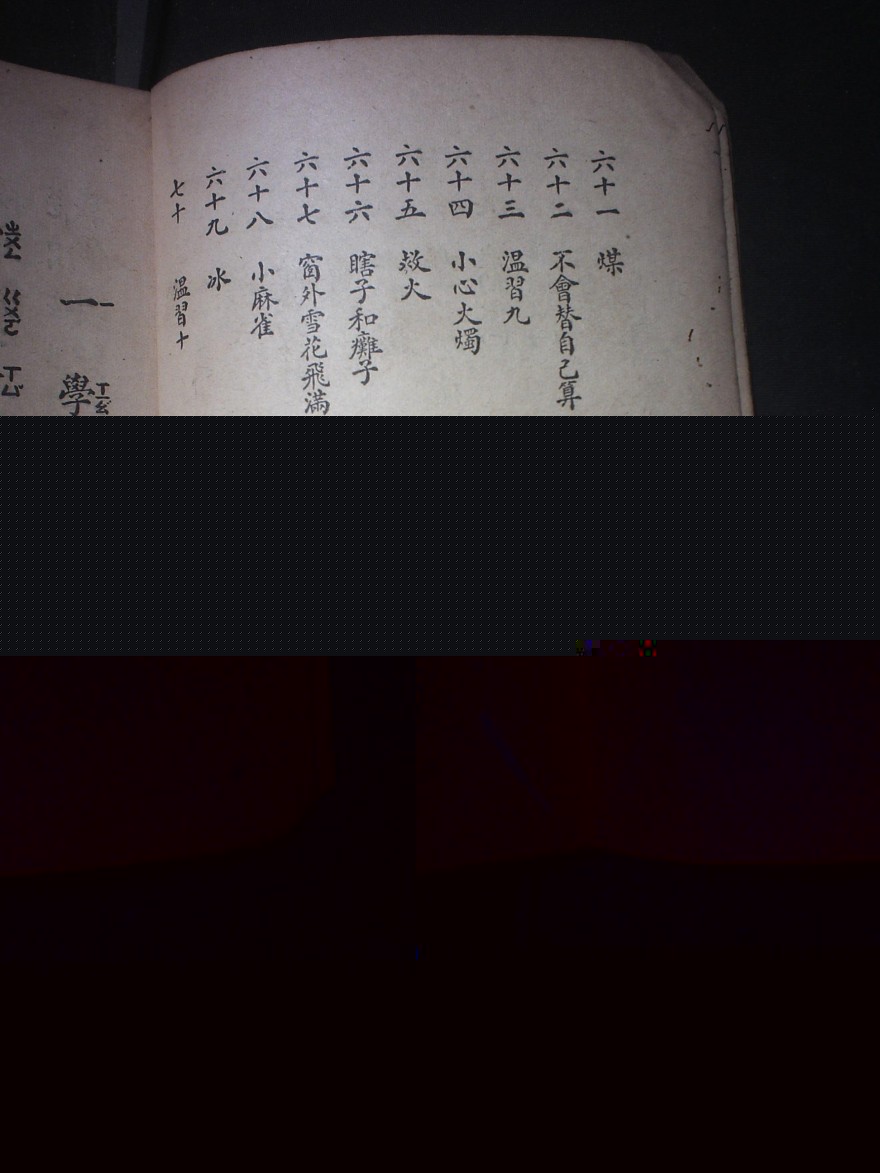 六十一 煤
六十二 不會替自己算
六十三 温習九
六十四 小心火燭
六十五 救火
六十六 瞎子和癱子
六十七 窗外雪花飛滿
六十八 小麻雀
六十九 冰
七十 温習十
一
學ㄒㄩㄝ